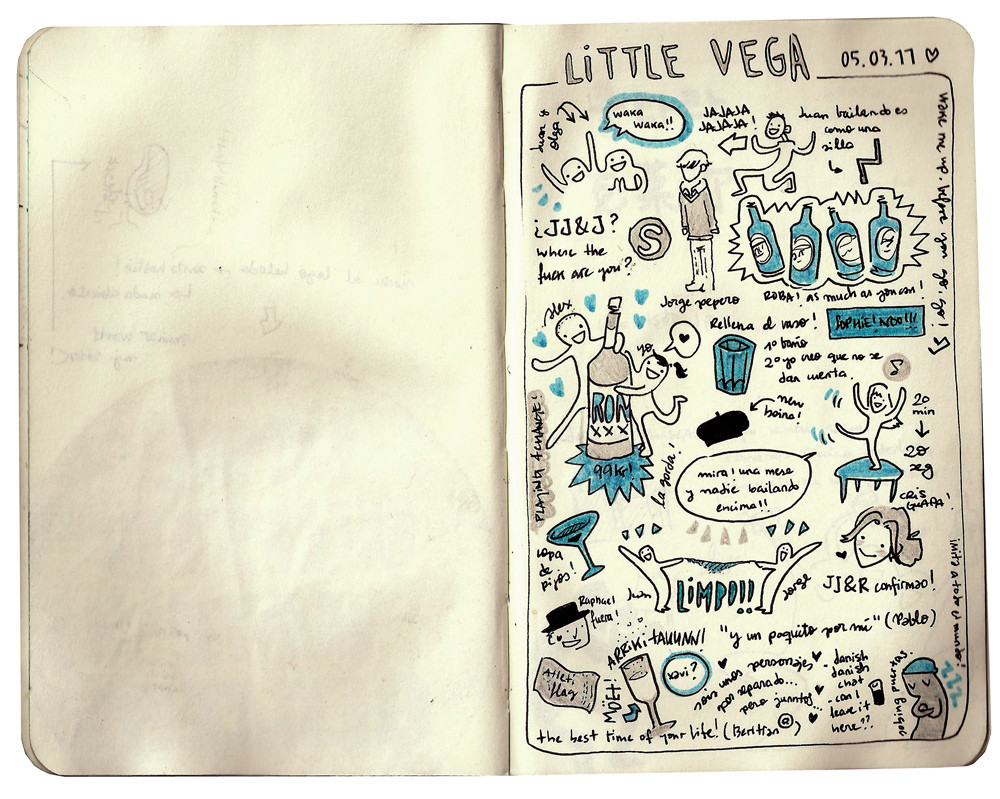 LiTTLE VEGA
05.03.11
Juan y
olga
waka
waka!!
JAJAJA
JAJAJA!
Juan bailando es
como una
silla
wake me up. before you go, go!
¿JJ&J?
where the
fuck are you?
S
Jorge pepero
ROBA! as much as you can!
SOPHIE! NOO!!!
alex
yo
Rellena el vaso!
1º baño
2º yo creo que no se
dan cuenta.
RON
XXX
99kr!
PLAYING 4 CHANGE!
la gorda!
new
boina!
mira! una mesa
y nadie bailando
encima!!
20
min
20
seg
CRIS
GUAPA!
copa
de
pijos!
Juan
LiMPO!!
Jorge
JJ&R confirmao!
¡imita a todo el mundo!
Raphael
fuera!
ARRiKiTAUNNN!
"y un poquito por mí" (Pablo)
Atleti
flag
MÖET!
xavi?
sois unos personajes
por separado...
pero junntos...
- danish
danish
chat
- can I
leave it
here??
the best time of your life! (Beritian @)